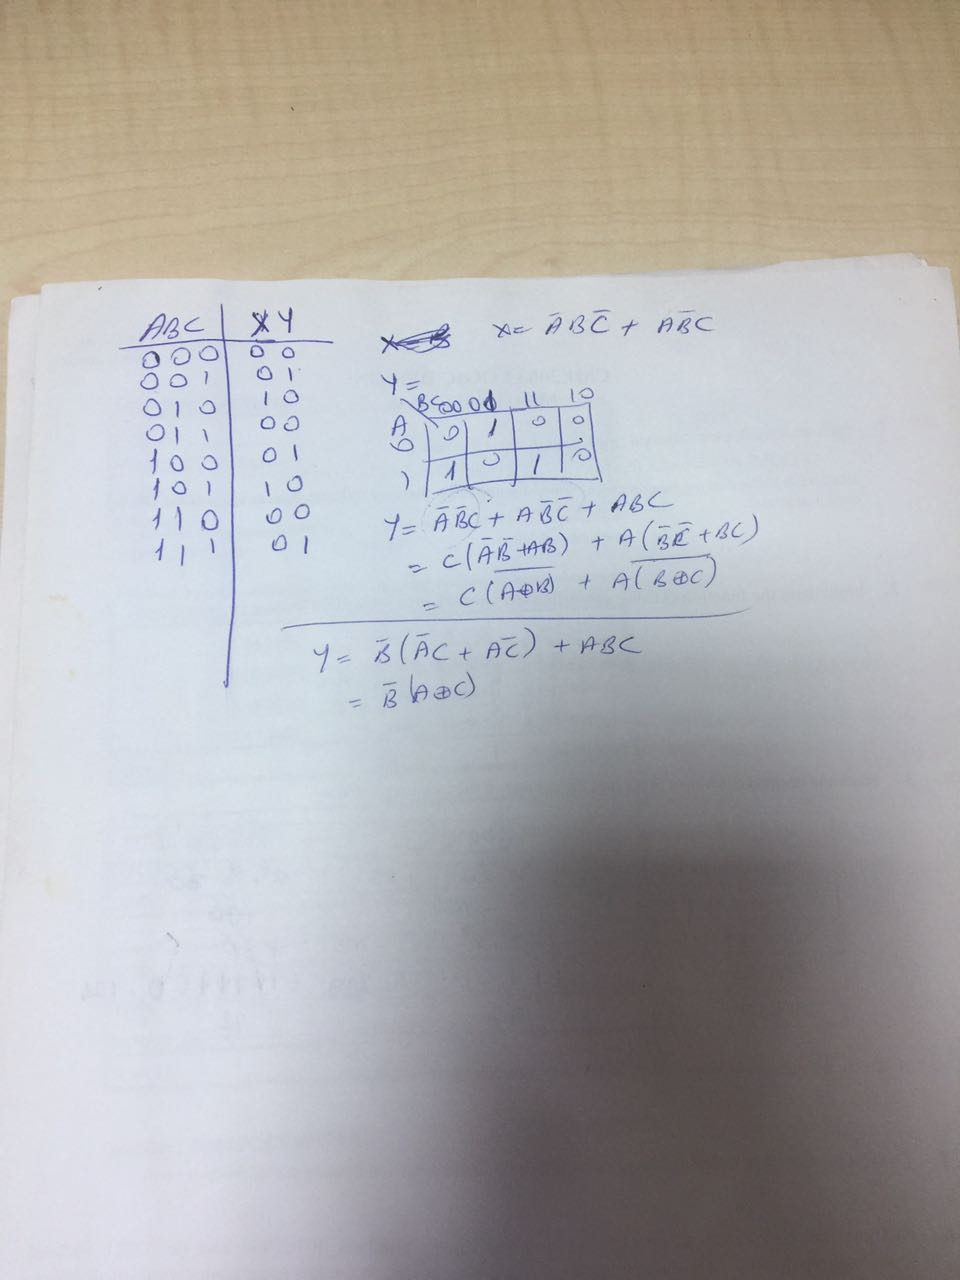 ABC XY
000 00
001 01
010 10
011 00
100 01
101 10
110 00
111 01
X= A̅BC̅ + AB̅C
Y=
BC 00 01 11 10
A
0 0 1 0 0
1 1 0 1 0
Y= A̅B̅C + AB̅C̅ + ABC
= C(A̅B̅+AB) + A(B̅C̅+BC)
= C(A̅⊕̅B̅) + A(B̅⊕̅C̅)
Y= B̅(A̅C + AC̅) + ABC
= B̅(A⊕C)